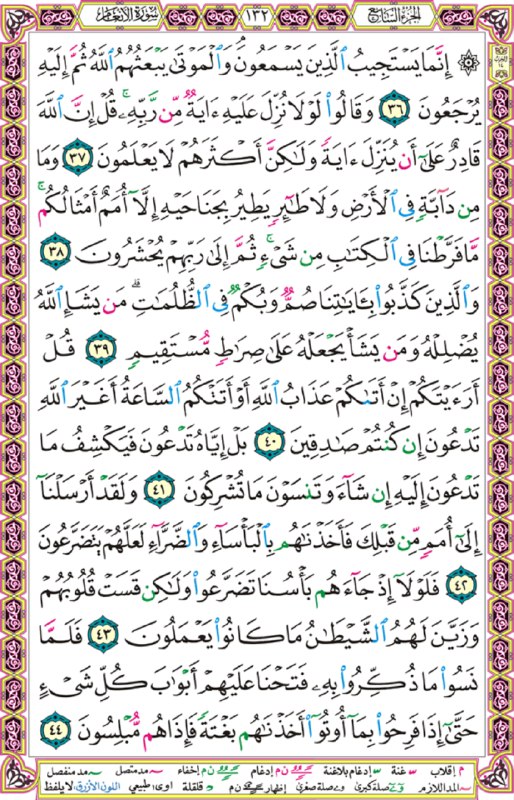 سورة الأنعام ١٣٢ الجزء السابع
۞ إِنَّمَا يَسْتَجِيبُ ٱلَّذِينَ يَسْمَعُونَ وَٱلْمَوْتَىٰ يَبْعَثُهُمُ ٱللَّهُ ثُمَّ إِلَيْهِ
يُرْجَعُونَ ٣٦ وَقَالُوا۟ لَوْلَا نُزِّلَ عَلَيْهِ ءَايَةٌ مِّن رَّبِّهِۦ ۚ قُلْ إِنَّ ٱللَّهَ
قَادِرٌ عَلَىٰٓ أَن يُنَزِّلَ ءَايَةً وَلَـٰكِنَّ أَكْثَرَهُمْ لَا يَعْلَمُونَ ٣٧ وَمَا
مِن دَآبَّةٍ فِى ٱلْأَرْضِ وَلَا طَـٰٓئِرٍ يَطِيرُ بِجَنَاحَيْهِ إِلَّآ أُمَمٌ أَمْثَالُكُم ۚ
مَّا فَرَّطْنَا فِى ٱلْكِتَـٰبِ مِن شَىْءٍ ۚ ثُمَّ إِلَىٰ رَبِّهِمْ يُحْشَرُونَ ٣٨
وَٱلَّذِينَ كَذَّبُوا۟ بِـَٔايَـٰتِنَا صُمٌّ وَبُكْمٌ فِى ٱلظُّلُمَـٰتِ ۗ مَن يَشَإِ ٱللَّهُ
يُضْلِلْهُ وَمَن يَشَأْ يَجْعَلْهُ عَلَىٰ صِرَٰطٍ مُّسْتَقِيمٍ ٣٩ قُلْ
أَرَءَيْتَكُمْ إِنْ أَتَىٰكُمْ عَذَابُ ٱللَّهِ أَوْ أَتَتْكُمُ ٱلسَّاعَةُ أَغَيْرَ ٱللَّهِ
تَدْعُونَ إِن كُنتُمْ صَـٰدِقِينَ ٤٠ بَلْ إِيَّاهُ تَدْعُونَ فَيَكْشِفُ مَا
تَدْعُونَ إِلَيْهِ إِن شَآءَ وَتَنسَوْنَ مَا تُشْرِكُونَ ٤١ وَلَقَدْ أَرْسَلْنَآ
إِلَىٰٓ أُمَمٍ مِّن قَبْلِكَ فَأَخَذْنَـٰهُم بِٱلْبَأْسَآءِ وَٱلضَّرَّآءِ لَعَلَّهُمْ يَتَضَرَّعُونَ
٤٢ فَلَوْلَآ إِذْ جَآءَهُم بَأْسُنَا تَضَرَّعُوا۟ وَلَـٰكِن قَسَتْ قُلُوبُهُمْ
وَزَيَّنَ لَهُمُ ٱلشَّيْطَـٰنُ مَا كَانُوا۟ يَعْمَلُونَ ٤٣ فَلَمَّا
نَسُوا۟ مَا ذُكِّرُوا۟ بِهِۦ فَتَحْنَا عَلَيْهِمْ أَبْوَٰبَ كُلِّ شَىْءٍ
حَتَّىٰٓ إِذَا فَرِحُوا۟ بِمَآ أُوتُوٓا۟ أَخَذْنَـٰهُم بَغْتَةً فَإِذَا هُم مُّبْلِسُونَ ٤٤
م إقلاب س غنة إدغام بلاغنة ن م إدغام ن م إخفاء مد متصل مد منفصل
المد اللازم صلة كبرى صلة صغرى إظهار ن م قلقلة اوى: طبيعي اللون الأزرق: لا يلفظ